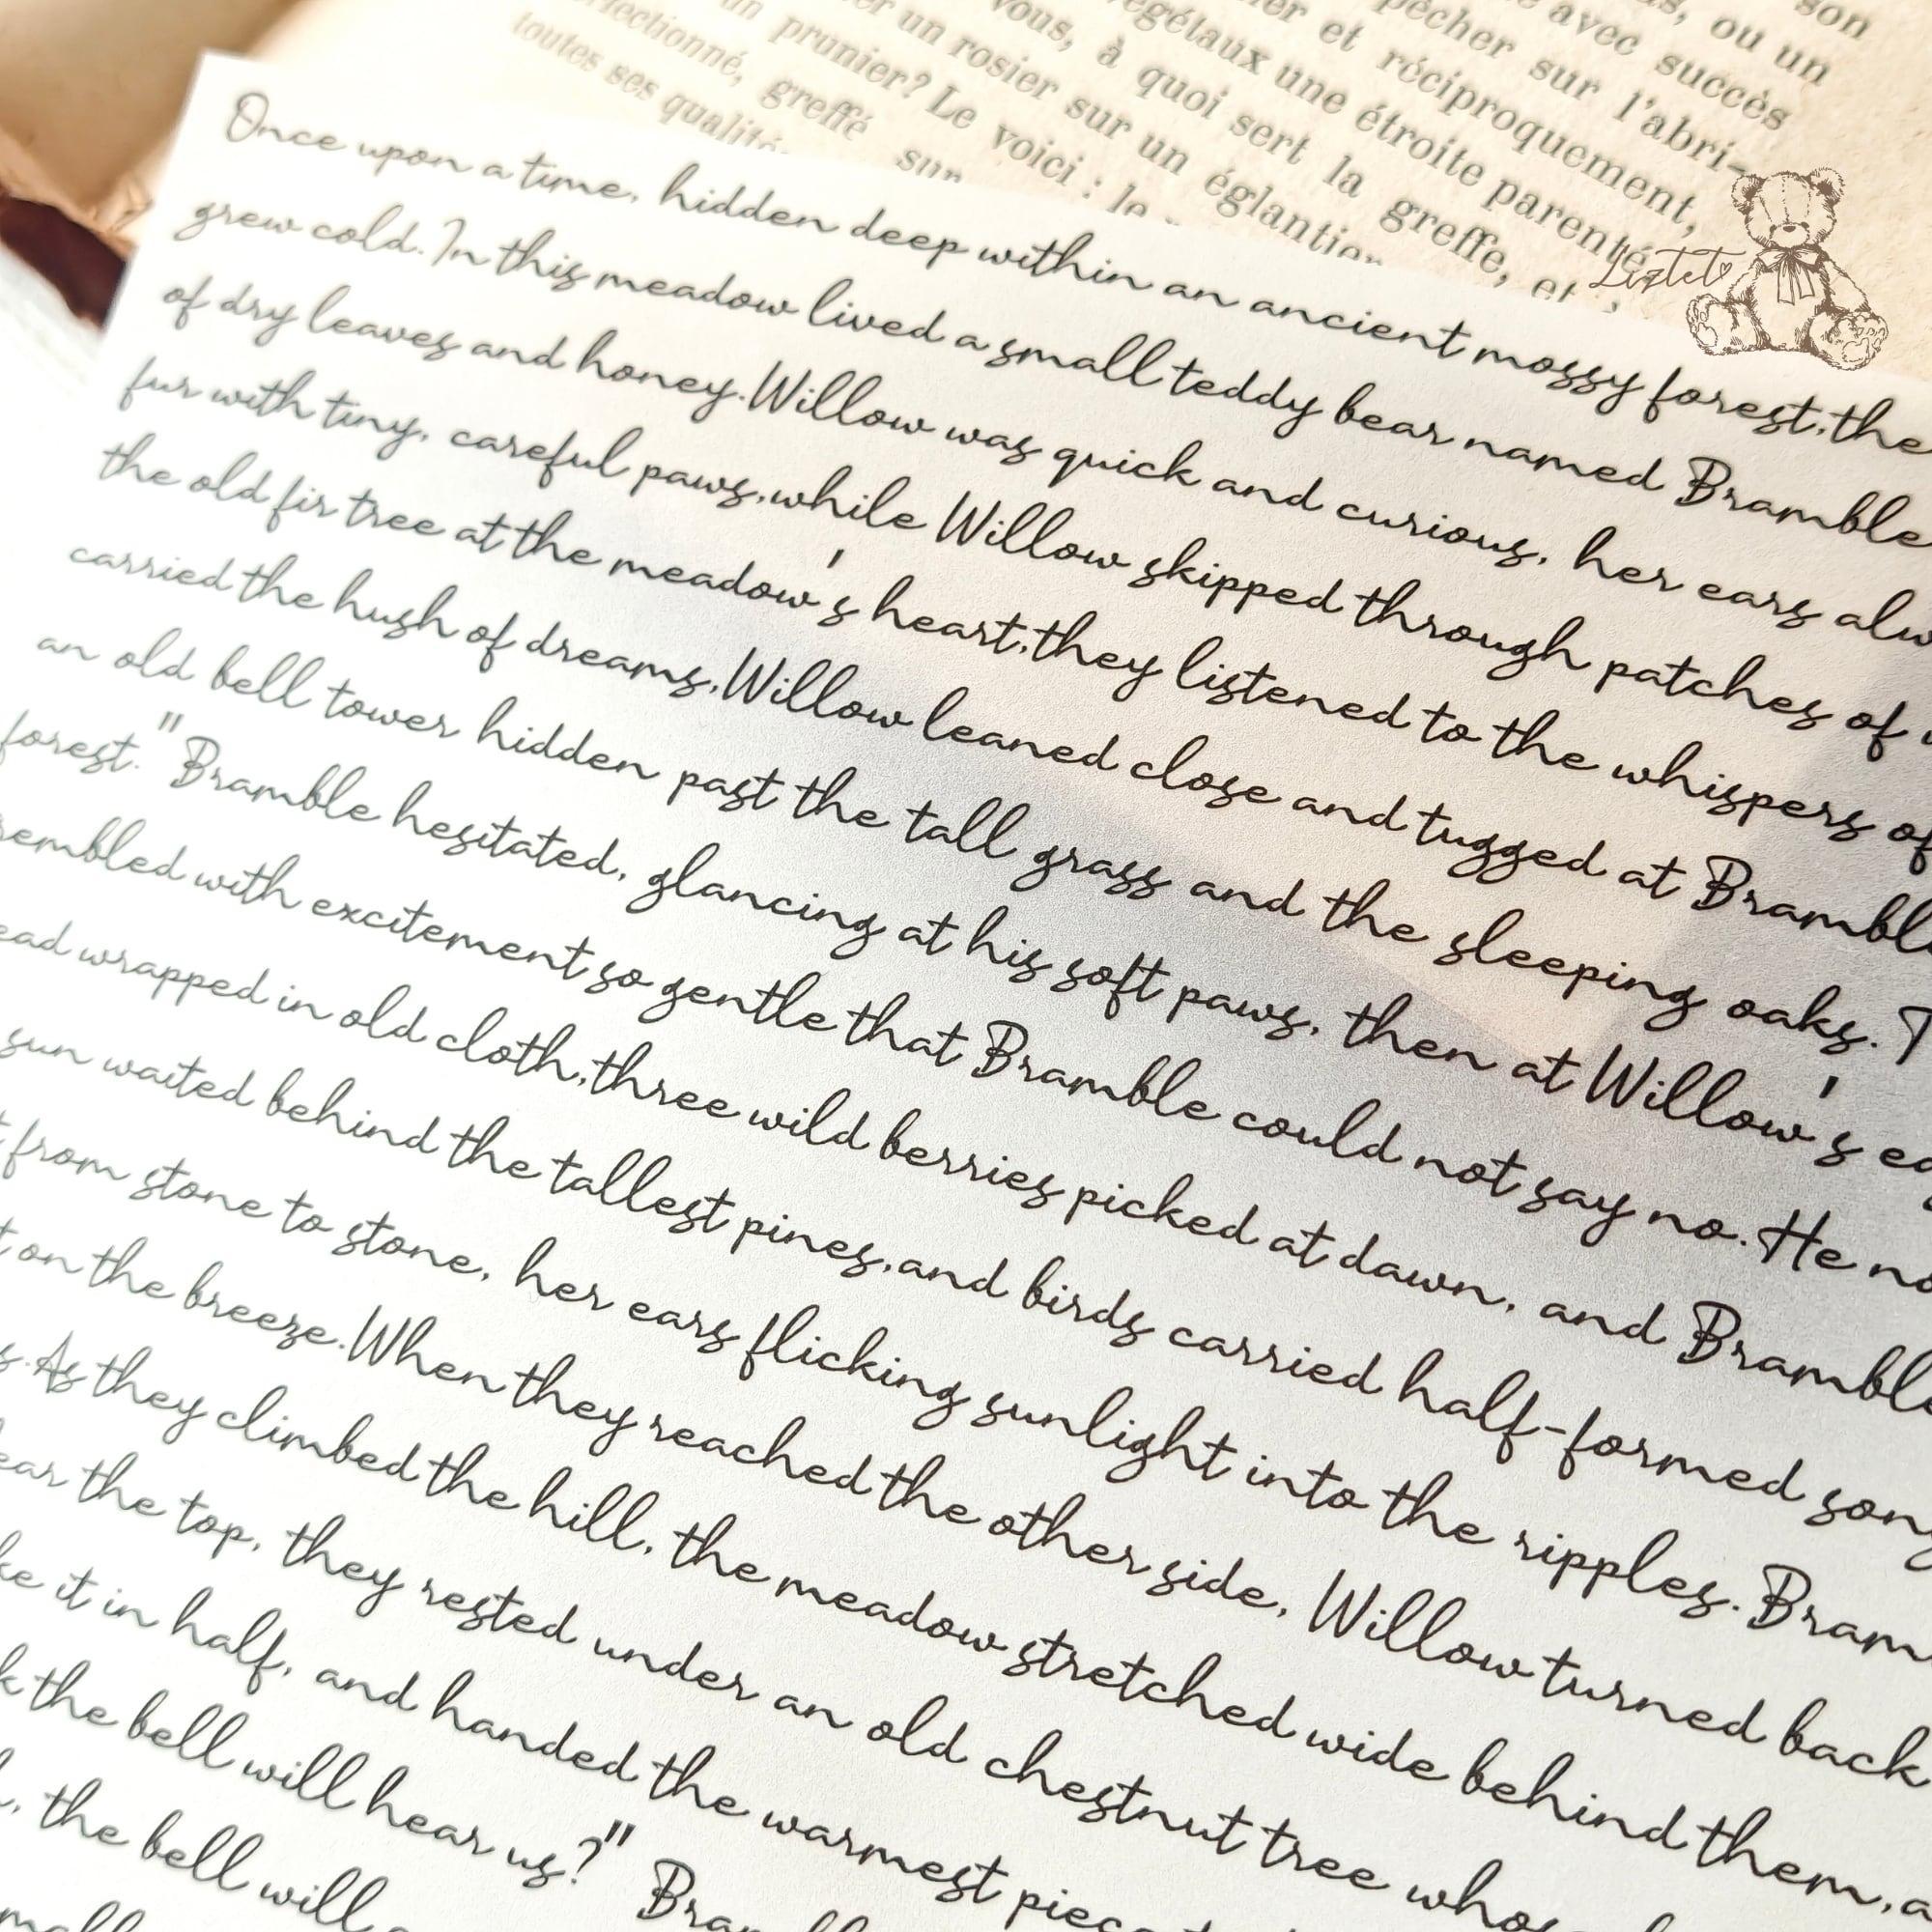 son
ou un
avec succès
pêcher sur l'abri-
et réciproquement,
végétaux une étroite parenté
vous, à quoi sert la greffe, et
un rosier sur un églantier
un prunier? Le voici : le
greffé sur
toutes ses qualité
Liztet
Once upon a time, hidden deep within an ancient mossy forest, the
grew cold. In this meadow lived a small teddy bear named Bramble
of dry leaves and honey. Willow was quick and curious, her ears alw
fur with tiny, careful paws, while Willow skipped through patches of
the old fir tree at the meadow's heart, they listened to the whispers of
carried the hush of dreams, Willow leaned close and tugged at Brambl
an old bell tower hidden past the tall grass and the sleeping oaks. T
forest." Bramble hesitated, glancing at his soft paws, then at Willow's ea
rembled with excitement so gentle that Bramble could not say no. He no
ead wrapped in old cloth, three wild berries picked at dawn, and Bramble
sun waited behind the tallest pines, and birds carried half-formed song
t from stone to stone, her ears flicking sunlight into the ripples. Bram
t on the breeze. When they reached the other side, Willow turned back
s. As they climbed the hill, the meadow stretched wide behind them, a
ear the top, they rested under an old chestnut tree whos
ke it in half, and handed the warmest piece t
k the bell will hear us?" Bram
, the bell will
mall